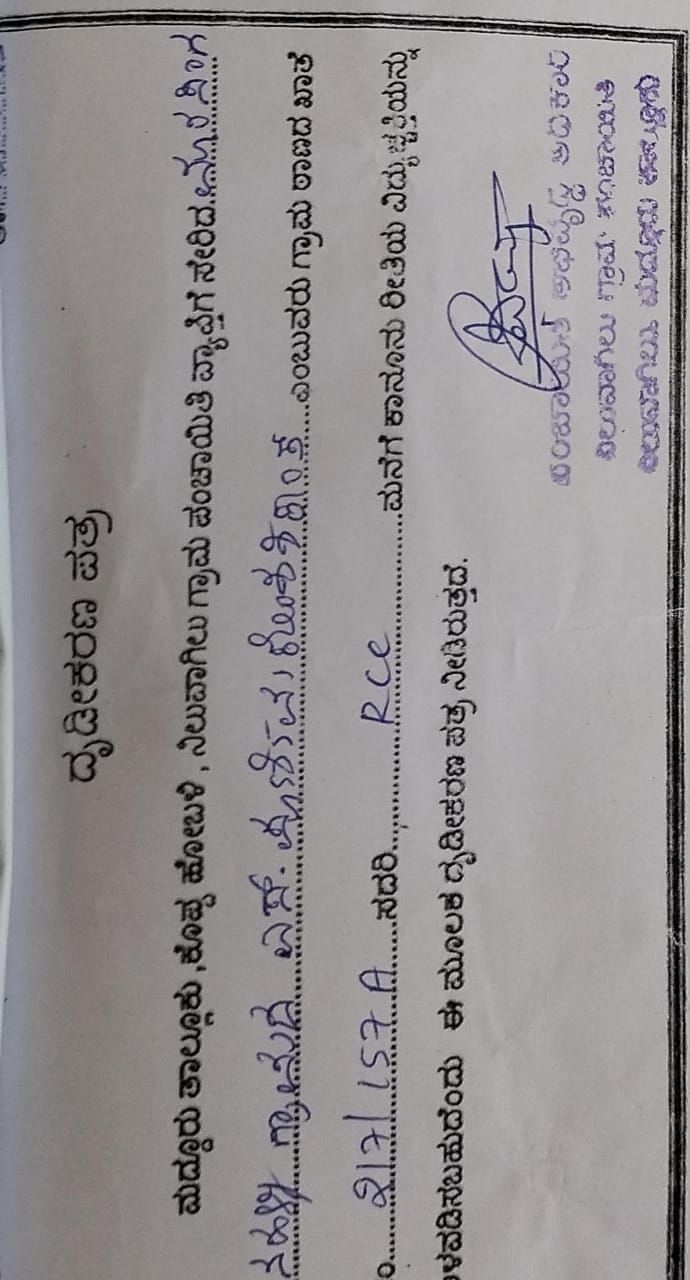 ದೃಢೀಕರಣ ಪತ್ರ
ಮದ್ದೂರು ತಾಲ್ಲೂಕು ,ಕೊಪ್ಪ ಹೋಬಳಿ , ನಿಲುವಾಗಿಲು ಗ್ರಾಮ ಪಂಚಾಯಿತಿ ವ್ಯಾಪ್ತಿಗೆ ಸೇರಿದ
ಗ್ರಾಮದ ಎಸ್. ಎಂಬುವರು ಗ್ರಾಮ ಠಾಣದ ಖಾತೆ
೦..... 217/157A .....ಸದರಿ..... RCC .....ಮನೆಗೆ ಕಾನೂನು ರೀತಿಯ ವಿದ್ಯುಚ್ಛಕ್ತಿಯನ್ನು
ಳವಡಿಸಬಹುದೆಂದು ಈ ಮೂಲಕ ದೃಢೀಕರಣ ಪತ್ರ ನೀಡಿರುತ್ತದೆ.
ಪಂಚಾಯತಿ ಅಭಿವೃದ್ಧಿ ಅಧಿಕಾರಿ
ನಿಲುವಾಗಿಲು ಗ್ರಾಮ ಪಂಚಾಯಿತಿ
ನಿಲುವಾಗಿಲು ಮದ್ದೂರು ತಾಲ್ಲೂಕು